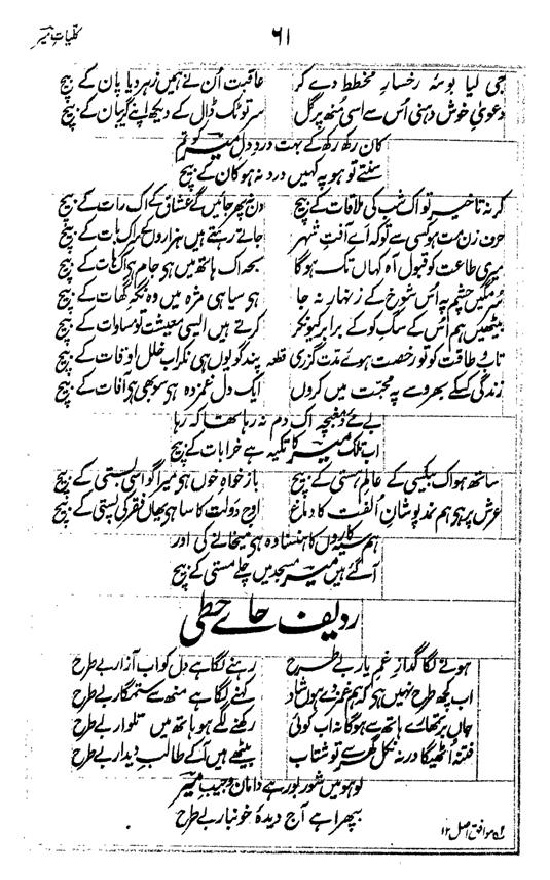 کلیاتِ میر
۶۱
جی لیا بوسۂ رخسارِ مخطط دے کر عاقبت اُن نے ہمیں زہر دیا پان کے بیچ
دعویِٰ خوش دہنی اُس سے اسی منھ پر گل سر تو ٹک ڈال کے دیکھ اپنے گریبان کے بیچ
کان رکھ رکھ کے بہت دردِ دلِ میر کو تم
سنتے تو ہو پہ کہیں درد نہ ہو کان کے بیچ
کر نہ تاخیر تو اک شب کی ملاقات کے بیچ دن نہ پھر جائیں گے عشاق کے اک رات کے بیچ
حرف زن مت ہو کسی سے تو کہ اے آفتِ شہر جاتے رہتے ہیں ہزاروں کے سر اک بات کے بیچ
میری طاعت کو قبول آہ کہاں تک ہوگا سبحہ اک ہاتھ میں ہی جام ہی اک ہات کے بیچ
سرمگیں چشم پہ اُس شوخ کے زنہار نہ جا ہی سیاہی مژہ میں وہ نگہ گھات کے بیچ
بیٹھیں ہم اُس کے سگِ کو کے برابر کیونکر کرتے ہیں ایسی معیشت تو مساوات کے بیچ
تاب و طاقت کو تو رخصت ہوئے مدت گزری قطعہ پندگو یوں ہی نکر اب خلل اوقات کے بیچ
زندگی کسکے بھروسے پہ محبت میں کروں ایک دل غمزدہ ہی سو بھی ہی آفات کے بیچ
بے مے و مغبچہ اک دم نہ رہا تھا کہ رہا
اب تلک میر کا تکیہ ہے خرابات کے بیچ
ساتھ ہو اک بیکسی کے عالمِ ہستی کے بیچ باز خواہِ خوں ہی میرا گو اسی بستی کے بیچ
عرش پر ہی ہم نمد پوشانِ اُلفت کا دماغ اوجِ دولت کا سا ہی یھاں فقر کی پستی کے بیچ
ہم سیہ کاروں کا ہنسنا وہ ہی میخانے کی اور
آگئے ہیں میر مسجد میں چلے مستی کے بیچ
ردیف حائے حطی
ہونے لگا گدازِ غمِ یار بے طرح رہنے لگا ہے دل کو اب آزار بے طرح
اب کچھ طرح نہیں ہی کہ ہم غمزدے ہوں شاد کہنے لگا ہے منھ سے ستمگار بے طرح
جاں بر تمھارے ہاتھ سے ہوگا نہ اب کوئی رکھنے لگے ہو ہاتھ میں تلوار بے طرح
فتنہ اُٹھیگا ورنہ نکل گھر سے تو شتاب بیٹھے ہیں آکے طالبِ دیدار بے طرح
لوہو میں شور بور ہے دامان و جیبِ میر
بپھرا ہے آج دیدۂ خونبار بے طرح
موافق اصل ۱۲